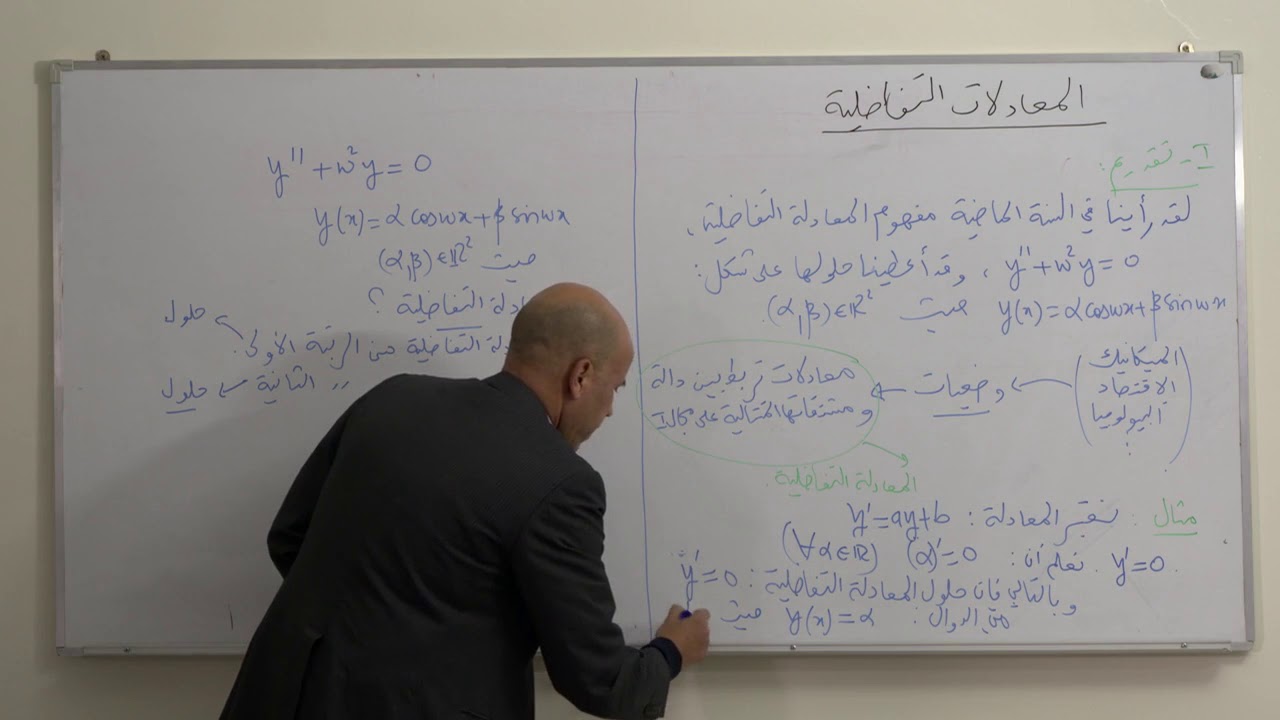 المعادلات التفاضلية
I- تقديم:
لقد رأينا في السنة الماضية مفهوم المعادلة التفاضلية،
y''+w²y=0 ، وقد أعطينا حلولها على شكل:
y(x)=αcoswx+βsinwx حيث (α,β)∈ℝ².
(الميكانيك الاقتصاد البيولوجيا ⋮) → وضعيات → معادلات تربط بين دالة
ومشتقاتها المتتالية على مجال I
المعادلة التفاضلية.
مثال: نعتبر المعادلة: y'=ay+b
y'=0. نعلم أن: (α)'=0 (∀α∈ℝ)
وبالتالي فإن حلول المعادلة التفاضلية: y'=0
هي الدوال: y(x)=α حيث
y''+w²y=0
y(x)=αcoswx+βsinwx
حيث (α,β)∈ℝ²
التفاضلية ؟
التفاضلية من الرتبة الأولى. → حلول
〃 الثانية → حلول